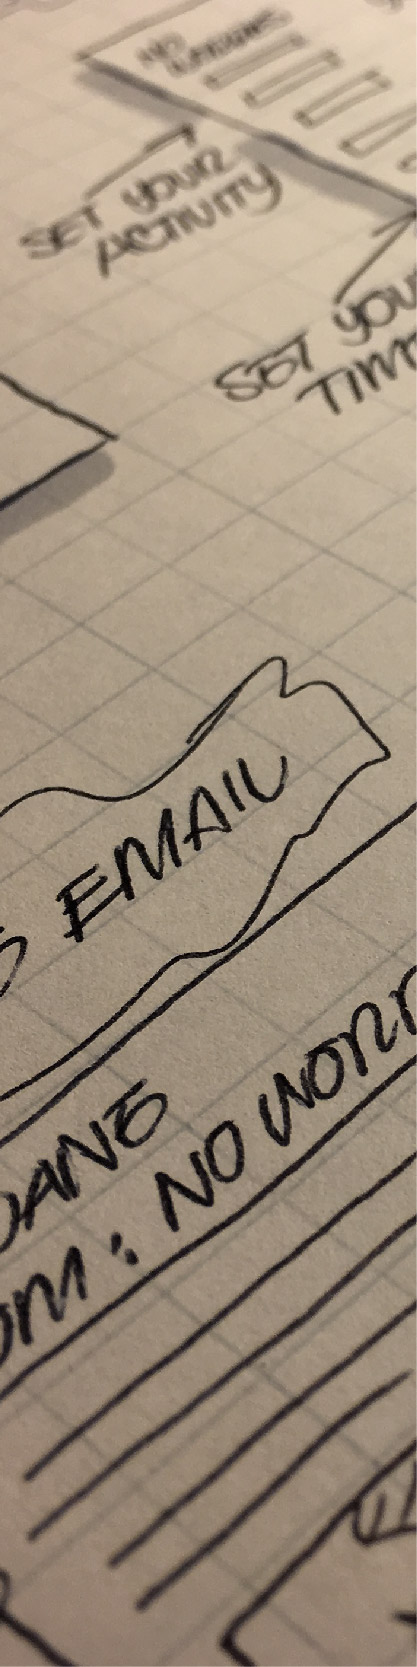 SET YOUR
ACTIVITY
SET YOU
TIM
EMAIL
JANE
OM: NO WORR